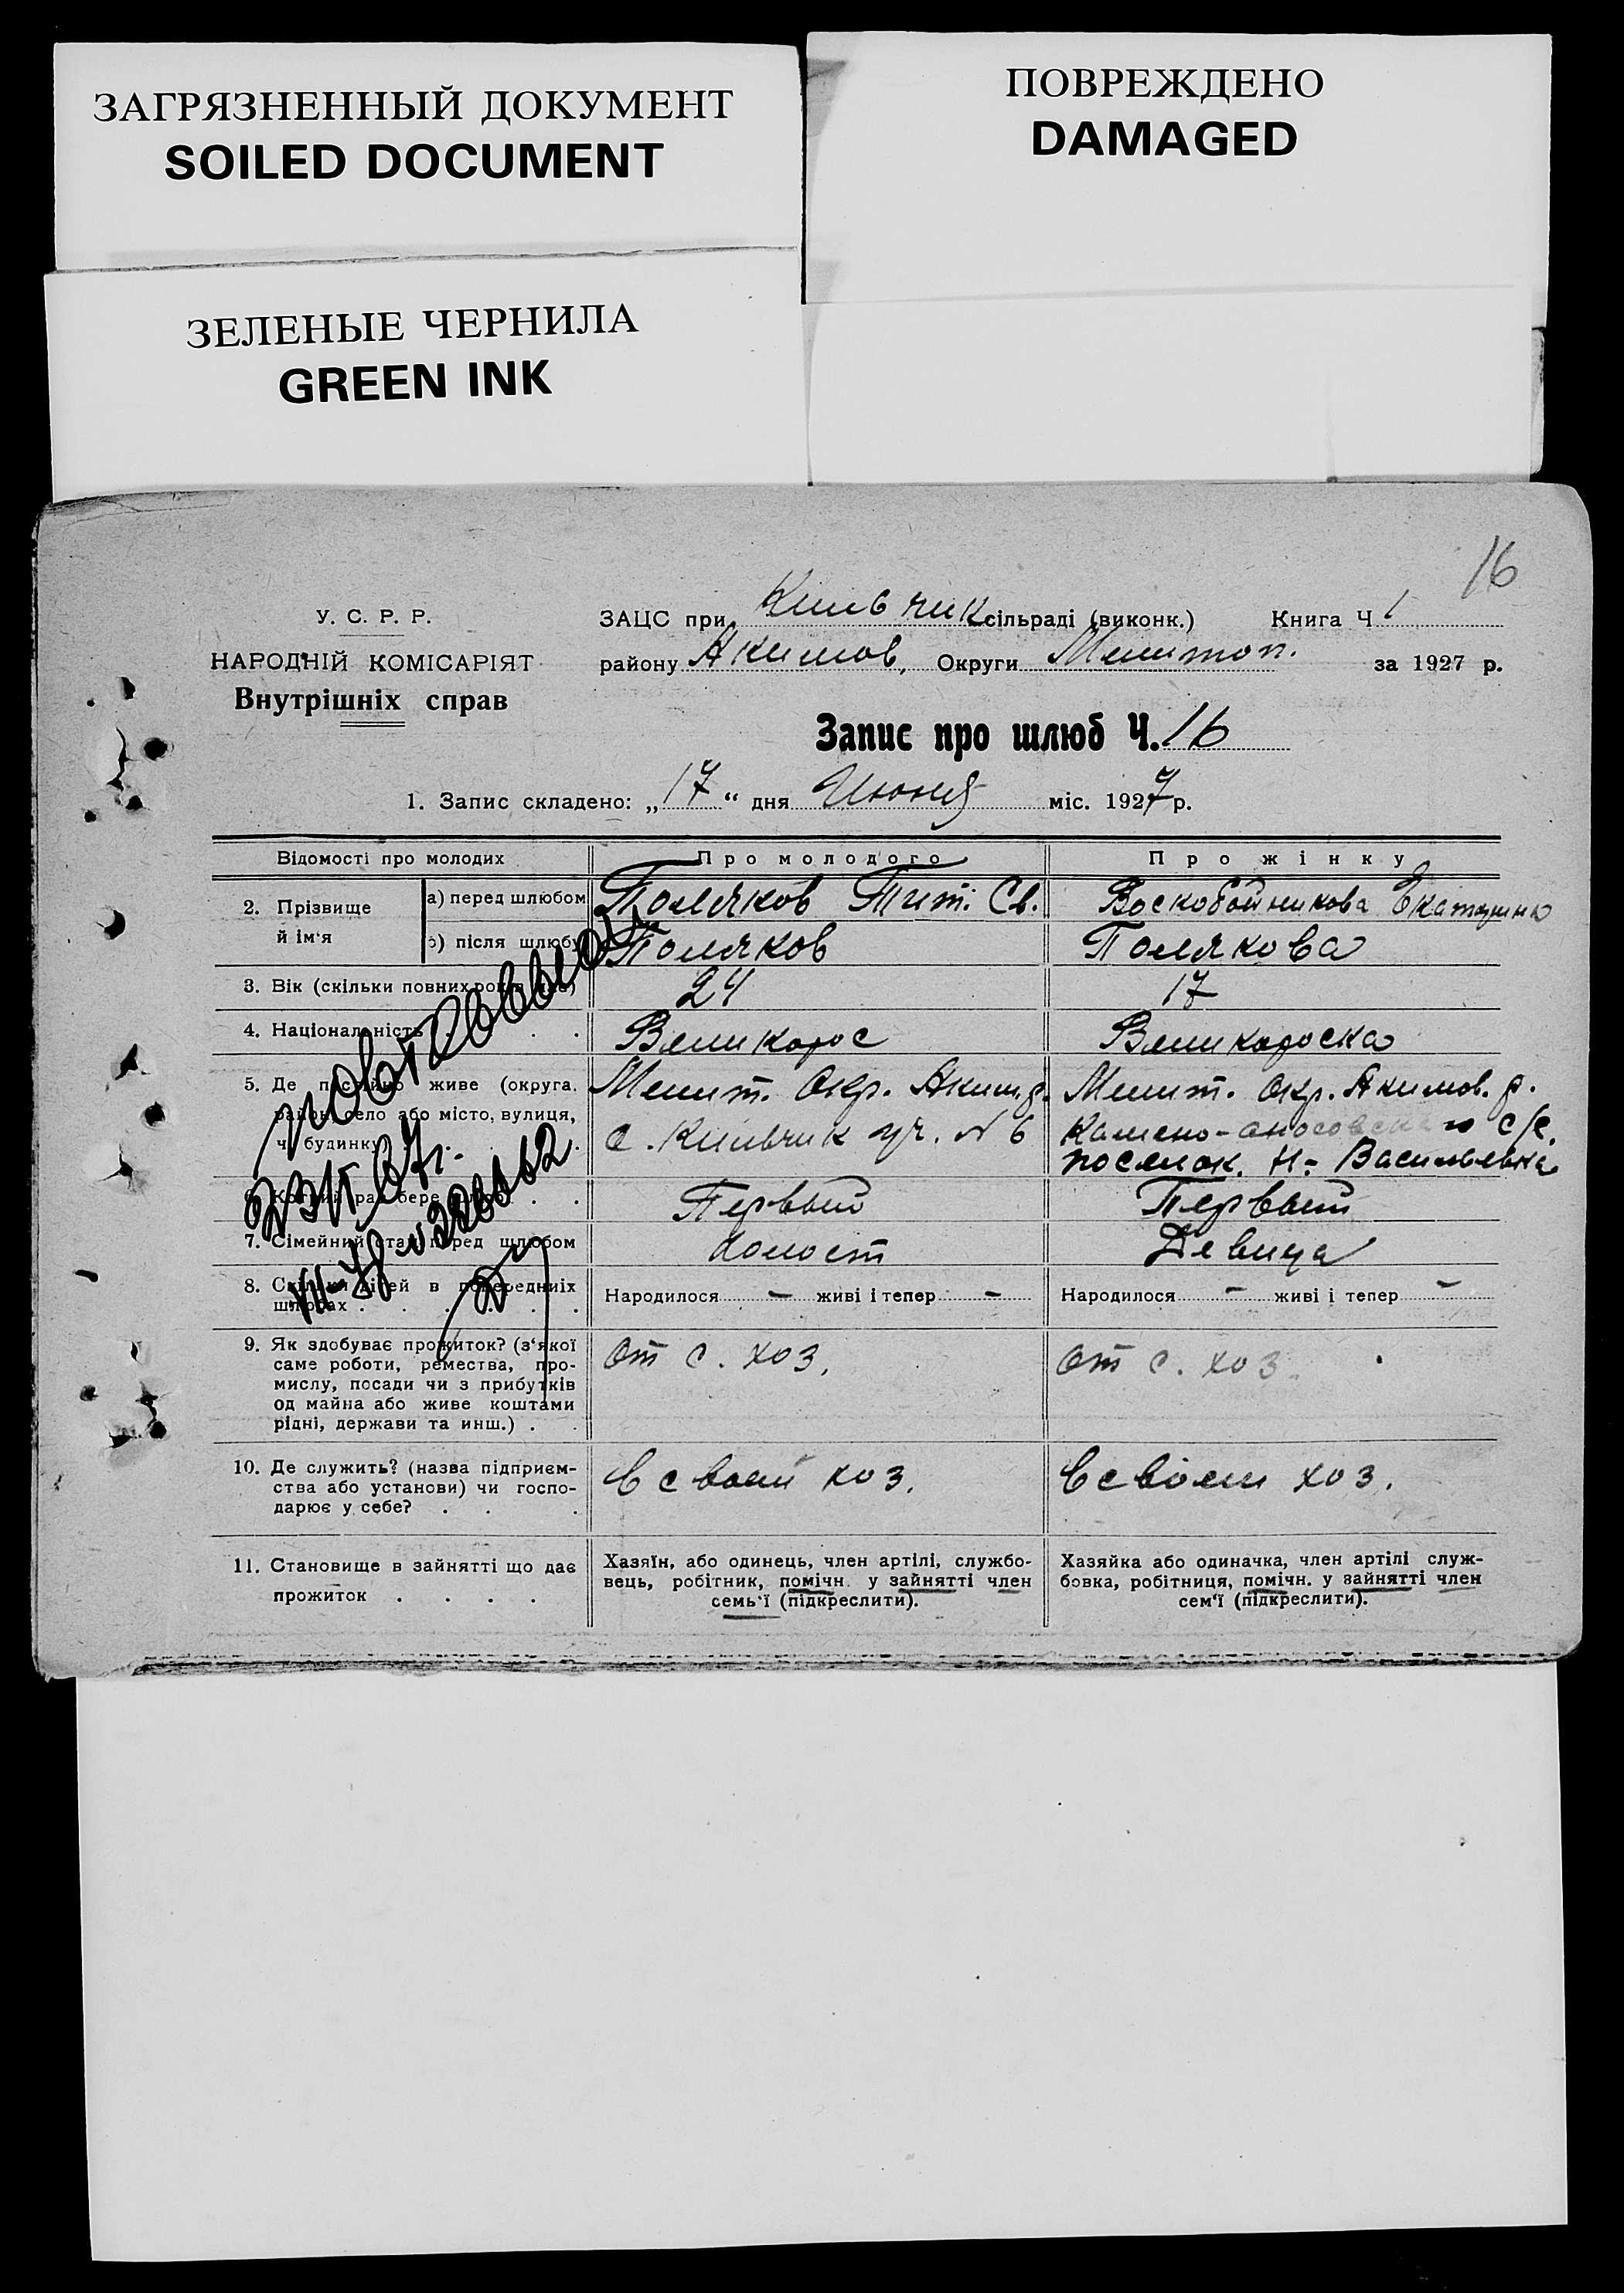 ЗАГРЯЗНЕННЫЙ ДОКУМЕНТ
SOILED DOCUMENT
ПОВРЕЖДЕНО
DAMAGED
ЗЕЛЕНЫЕ ЧЕРНИЛА
GREEN INK
16
У. С. Р. Р.
НАРОДНІЙ КОМІСАРІЯТ
Внутрішніх справ
ЗАЦС при Кильчик сільраді (виконк.) Книга Ч 1
району Акимов, Округи Мелитоп. за 1927 р.
Запис про шлюб Ч. 16
1. Запис складено: „17“ дня Июня міс. 1927 р.
Відомості про молодих Про молодого Про жінку
2. Прізвище й ім‘я
а) перед шлюбом Поляков Тит. Св. Воскобойникова Екатерина
б) після шлюбу Поляков Полякова
3. Вік (скільки повних років має) 24 17
4. Національність . . Великорос Великороска
5. Де постійно живе (округа, Мелит. Окр. Аким. р. Мелит. окр. Акимов. р.
район, село або місто, вулиця, с. Кильчик уч. № 6 Камено-аносовского с/с.
ч. будинку . . поселок. Н-Васильевка
6. Котрий раз бере шлюб . . Первый Первый
7. Сімейний стан перед шлюбом холост Девица
8. Скільки дітей в попереднііх Народилося — живі і тепер — Народилося — живі і тепер —
шлюбах . . . . . .
9. Як здобуває прожиток? (з‘якої От с. хоз. От с. хоз.
саме роботи, ремества, про-
мислу, посади чи з прибутків
од майна або живе коштами
рідні, держави та инш.) .
10. Де служить? (назва підприєм- В своем хоз. В своем хоз.
ства або установи) чи госпо-
дарює у себе? . . .
11. Становище в зайнятті що дає
прожиток . . . .
Хазяїн, або одинець, член артілі, службо-
вець, робітник, помічн. у зайнятті член
семь‘ї (підкреслити).
Хазяйка або одиначка, член артілі служ-
бовка, робітниця, помічн. у зайнятті член
сем‘ї (підкреслити).